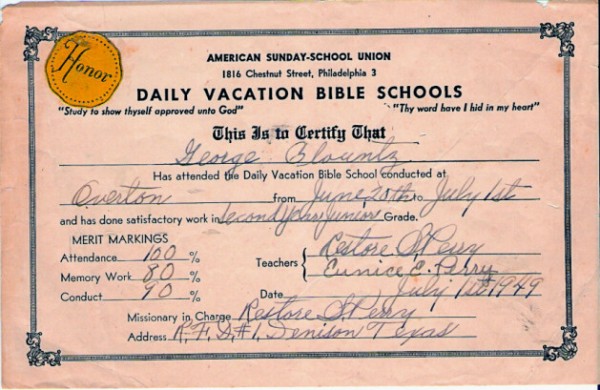 Honor
AMERICAN SUNDAY-SCHOOL UNION
1816 Chestnut Street, Philadelphia 3
DAILY VACATION BIBLE SCHOOLS
"Study to show thyself approved unto God" "Thy word have I hid in my heart"
This Is to Certify That
George Blountz
Has attended the Daily Vacation Bible School conducted at
Overton from June 20th to July 1st
and has done satisfactory work in Second Year Junior Grade.
MERIT MARKINGS
Attendance 100 %
Memory Work 80 %
Conduct 90 %
Teachers { Restore S. Perry
Eunice E. Perry
Date July 1st 1949
Missionary in Charge Restore S. Perry
Address R.F.D.#1, Denison Texas